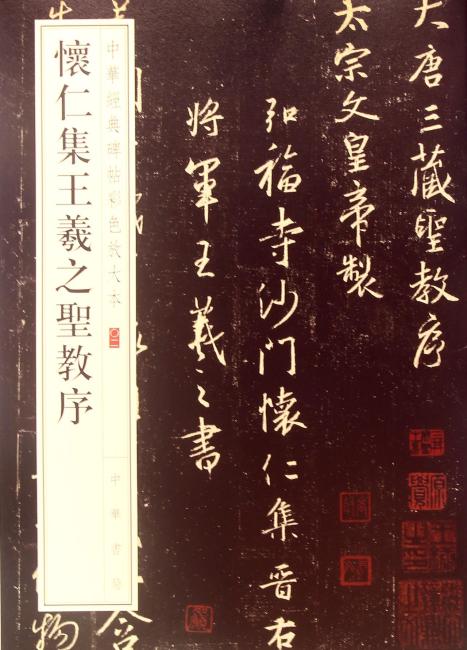 大唐三藏聖教序
太宗文皇帝製
弘福寺沙門懷仁集晉右
將軍王羲之書
中華經典碑帖彩色放大本
懷仁集王羲之聖教序
中華書局
含
物